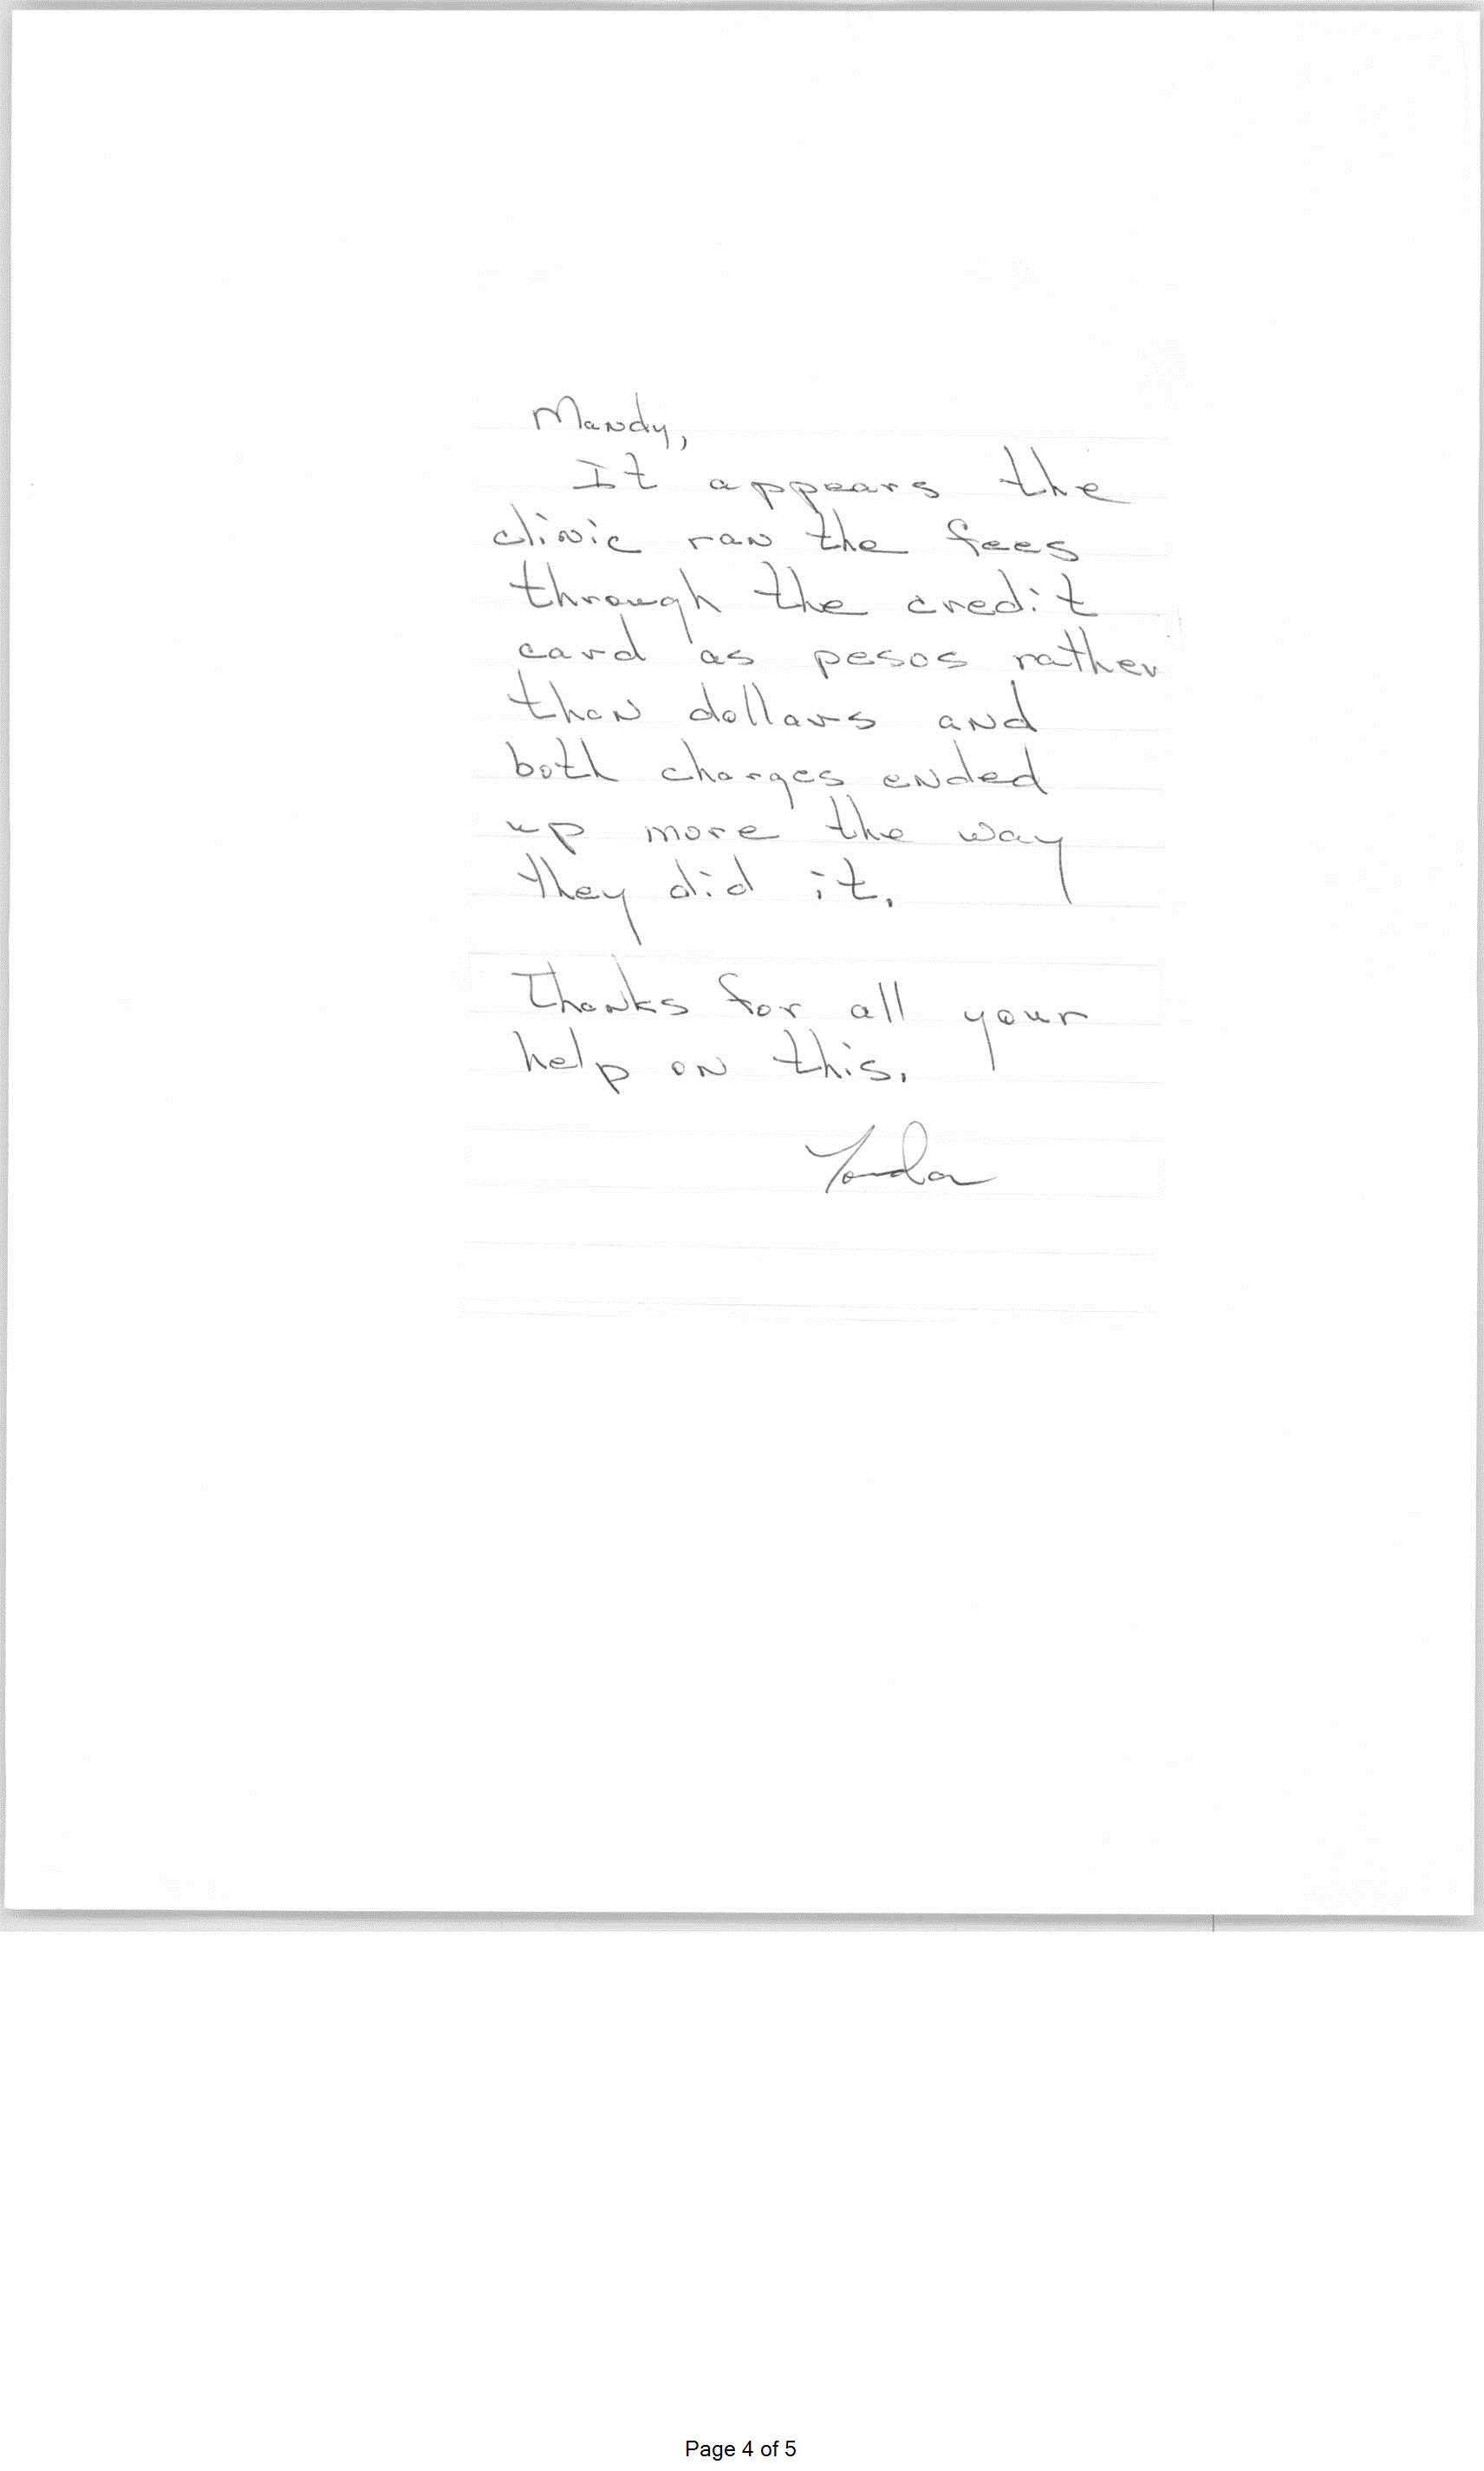 Mandy,
It appears the
clinic ran the fees
through the credit
card as pesos rather
than dollars and
both charges ended
up more the way
they did it.
Thanks for all your
help on this.
Page 4 of 5